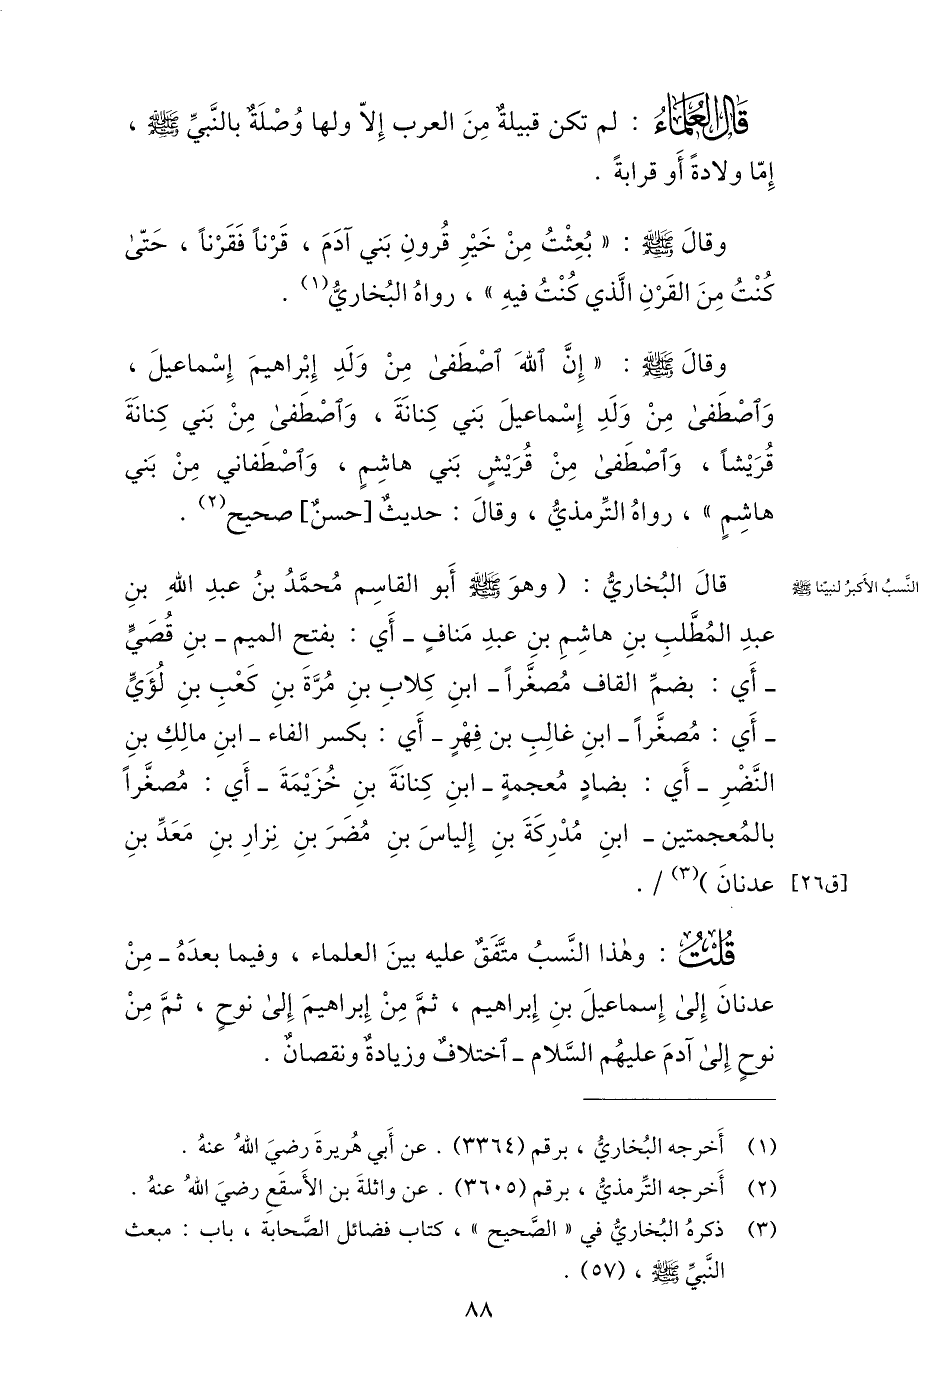 قَالَ العُلَمَاءُ : لم تكن قبيلةٌ مِنَ العرب إِلاّ ولها وُصْلَةٌ بالنَّبيِّ ﷺ ،
إِمّا ولادةً أَو قرابةً .
وقالَ ﷺ : « بُعِثْتُ مِنْ خَيْرِ قُرونِ بَني آدَمَ ، قَرْناً فَقَرْناً ، حَتّىٰ
كُنْتُ مِنَ القَرْنِ الَّذي كُنْتُ فيهِ » ، رواهُ البُخاريُّ(١) .
وقالَ ﷺ : « إِنَّ ٱللهَ ٱصْطَفىٰ مِنْ وَلَدِ إِبْراهيمَ إِسْماعيلَ ،
وَٱصْطَفىٰ مِنْ وَلَدِ إِسْماعيلَ بَني كِنانَةَ ، وَٱصْطَفىٰ مِنْ بَني كِنانَةَ
قُرَيْشاً ، وَٱصْطَفىٰ مِنْ قُرَيْشٍ بَني هاشِمٍ ، وَٱصْطَفاني مِنْ بَني
هاشِمٍ » ، رواهُ التِّرمذيُّ ، وقالَ : حديثٌ [حسنٌ] صحيح(٢) .
النَّسبُ الأَكبرُ لنبيّنا ﷺ
قالَ البُخاريُّ : ( وهوَ ﷺ أَبو القاسِم مُحمَّدُ بنُ عبدِ اللهِ بنِ
عبدِ المُطَّلبِ بنِ هاشِمِ بنِ عبدِ مَنافٍ ـ أَي : بفتح الميم ـ بنِ قُصَيٍّ
ـ أَي : بضمِّ القاف مُصغَّراً ـ ابنِ كِلابِ بنِ مُرَّةَ بنِ كَعْبِ بنِ لُؤَيٍّ
ـ أَي : مُصغَّراً ـ ابنِ غالِبِ بن فِهْرٍ ـ أَي : بكسر الفاء ـ ابنِ مالِكِ بنِ
النَّضْرِ ـ أَي : بضادٍ مُعجمةٍ ـ ابنِ كِنانَةَ بنِ خُزَيْمَةَ ـ أَي : مُصغَّراً
بالمُعجمتين ـ ابنِ مُدْرِكَةَ بنِ إِلياسَ بنِ مُضَرَ بنِ نِزارِ بنِ مَعَدِّ بنِ
عدنانَ )(٣) / . [ق٢٦]
قُلْتُ : وهٰذا النَّسبُ متَّفَقٌ عليه بينَ العلماء ، وفيما بعدَهُ ـ مِنْ
عدنانَ إِلىٰ إِسماعيلَ بنِ إِبراهيم ، ثمَّ مِنْ إِبراهيمَ إِلىٰ نوحٍ ، ثمَّ مِنْ
نوحٍ إِلىٰ آدمَ عليهُم السَّلام ـ ٱختلافٌ وزيادةٌ ونقصانٌ .
(١) أَخرجه البُخاريُّ ، برقم (٣٣٦٤) . عن أَبي هُريرةَ رضيَ اللهُ عنهُ .
(٢) أَخرجه التِّرمذيُّ ، برقم (٣٦٠٥) . عن واثلةَ بن الأَسقَعِ رضيَ اللهُ عنهُ .
(٣) ذكرهُ البُخاريُّ في « الصَّحيح » ، كتاب فضائل الصَّحابة ، باب : مبعث
النَّبيِّ ﷺ ، (٥٧) .
٨٨